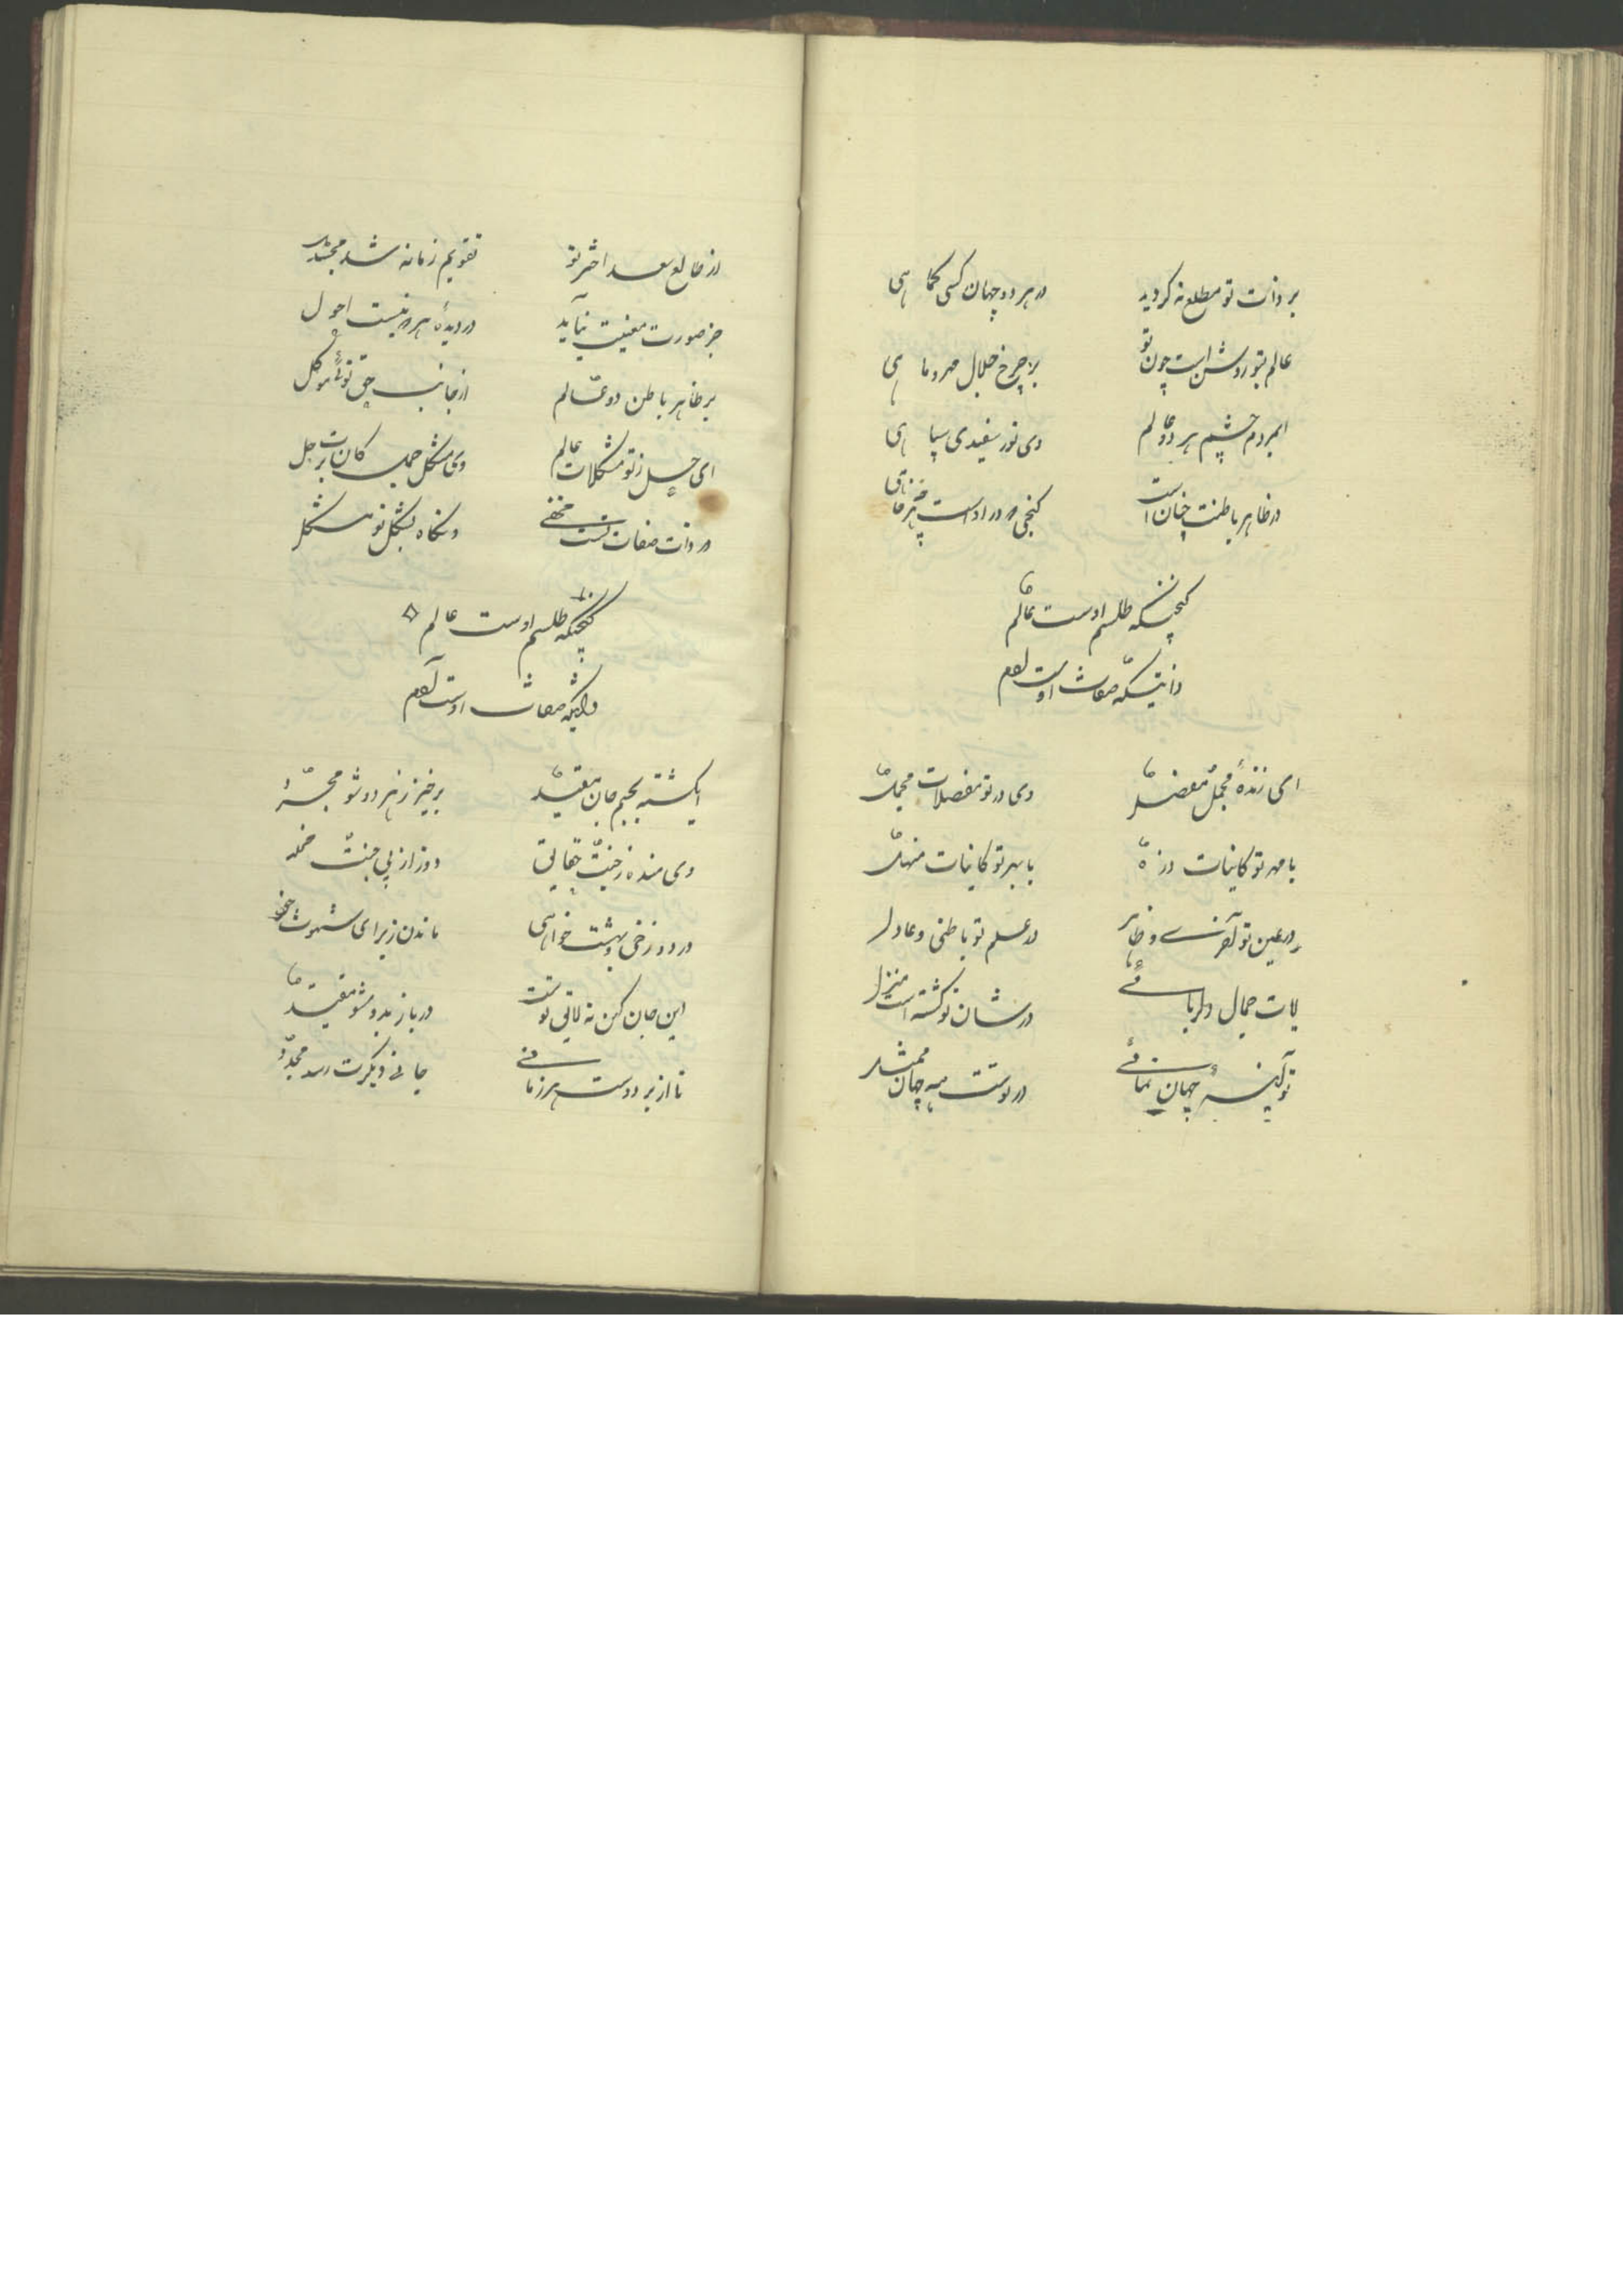 بر ذات تو مطلع نه کردید در هر دو جهان کسی کما هی
عالم بتو روشن است چون تو بر چرخ خلال مهر و ماهی
ایمردم چشم هر دو عالم وی نور سفیدی سیاهی
در ظاهر باطنت چنان است
گنجینکه طلسم اوست عالم
ذاتیکه صفات اوست آدم
ای زندهٔ مجمل مفصل وی در تو مفصلات مجمل
با مهر تو کاینات ذره با بهر تو کاینات منهل
در عین تو آخری و ظاهر در علم تو باطنی و
یات جمال دلربائی در شان تو گشته است منزل
تو آینهٔ جهان نمائی در تست همه جهان ممثل
از طالع سعد اختر تو تقویم زمانه شد
جز صورت معنیت نیاید در دیدهٔ هر که نیست احول
بر ظاهر باطن دو عالم از جانب حق توئی موکل
ای حل ز تو مشکلات عالم وی مشکل
در ذات صفات تست مخفی وانگاه بشکل تو مشکل
گنجیکه طلسم اوست عالم
ذاتیکه صفات اوست آدم
ایکشته بجسم جان مقید برخیز ز هر دو شو مجرد
وی منده ز جنت حقایق دور از پی جنت مخلد
در دوزخی و بهشت خواهی ماندن ز برای شهوت خود
این جان کهن نه لایق تست در باز بدو مشو مقید
تا از بر دوست هر زمانی جانی دیگرت رسد مجدد